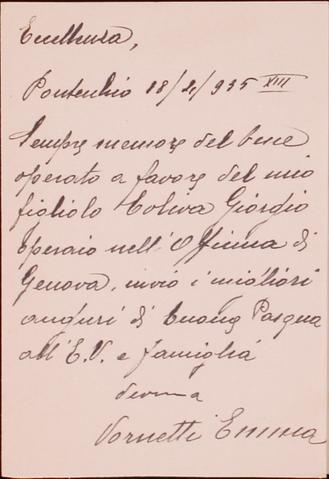 Eccellenza,
Pontecchio 18/4/935 XIII
Sempre memore del bene
operato a favore del mio
figliolo Coliva Giorgio
operaio nell'Officina di
Genova, invio i migliori
auguri di buona Pasqua
all'E.V. e famiglia
Vornetti Emma